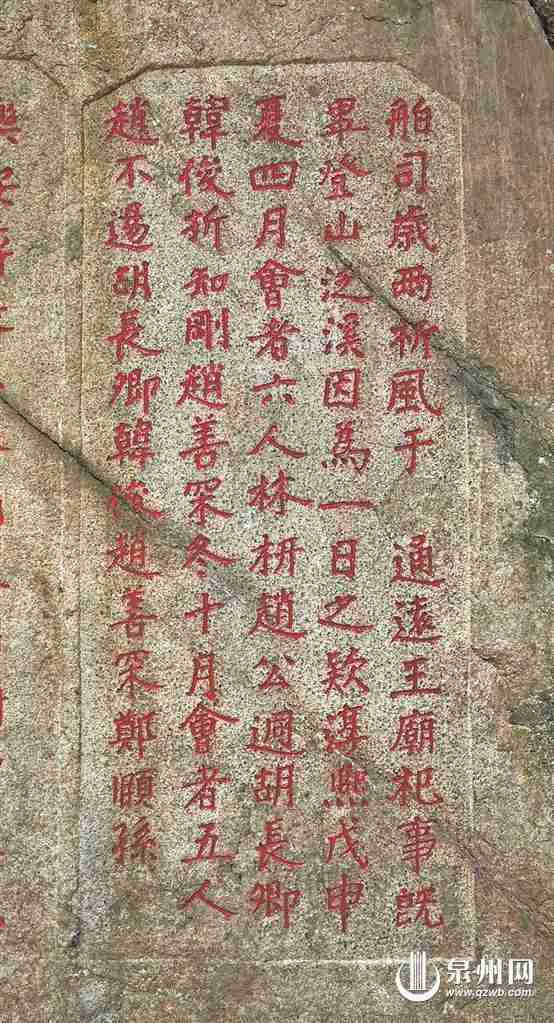 舶司歲兩祈風于 通遠王廟祀事既
畢登山泛溪因為一日之欵淳熙戊申
夏四月會者六人林枅趙公迥胡長卿
韓俊折知剛趙善罙冬十月會者五人
趙不逷胡長卿韓俊趙善罙鄭頤孫
泉州网
www.qzwb.com